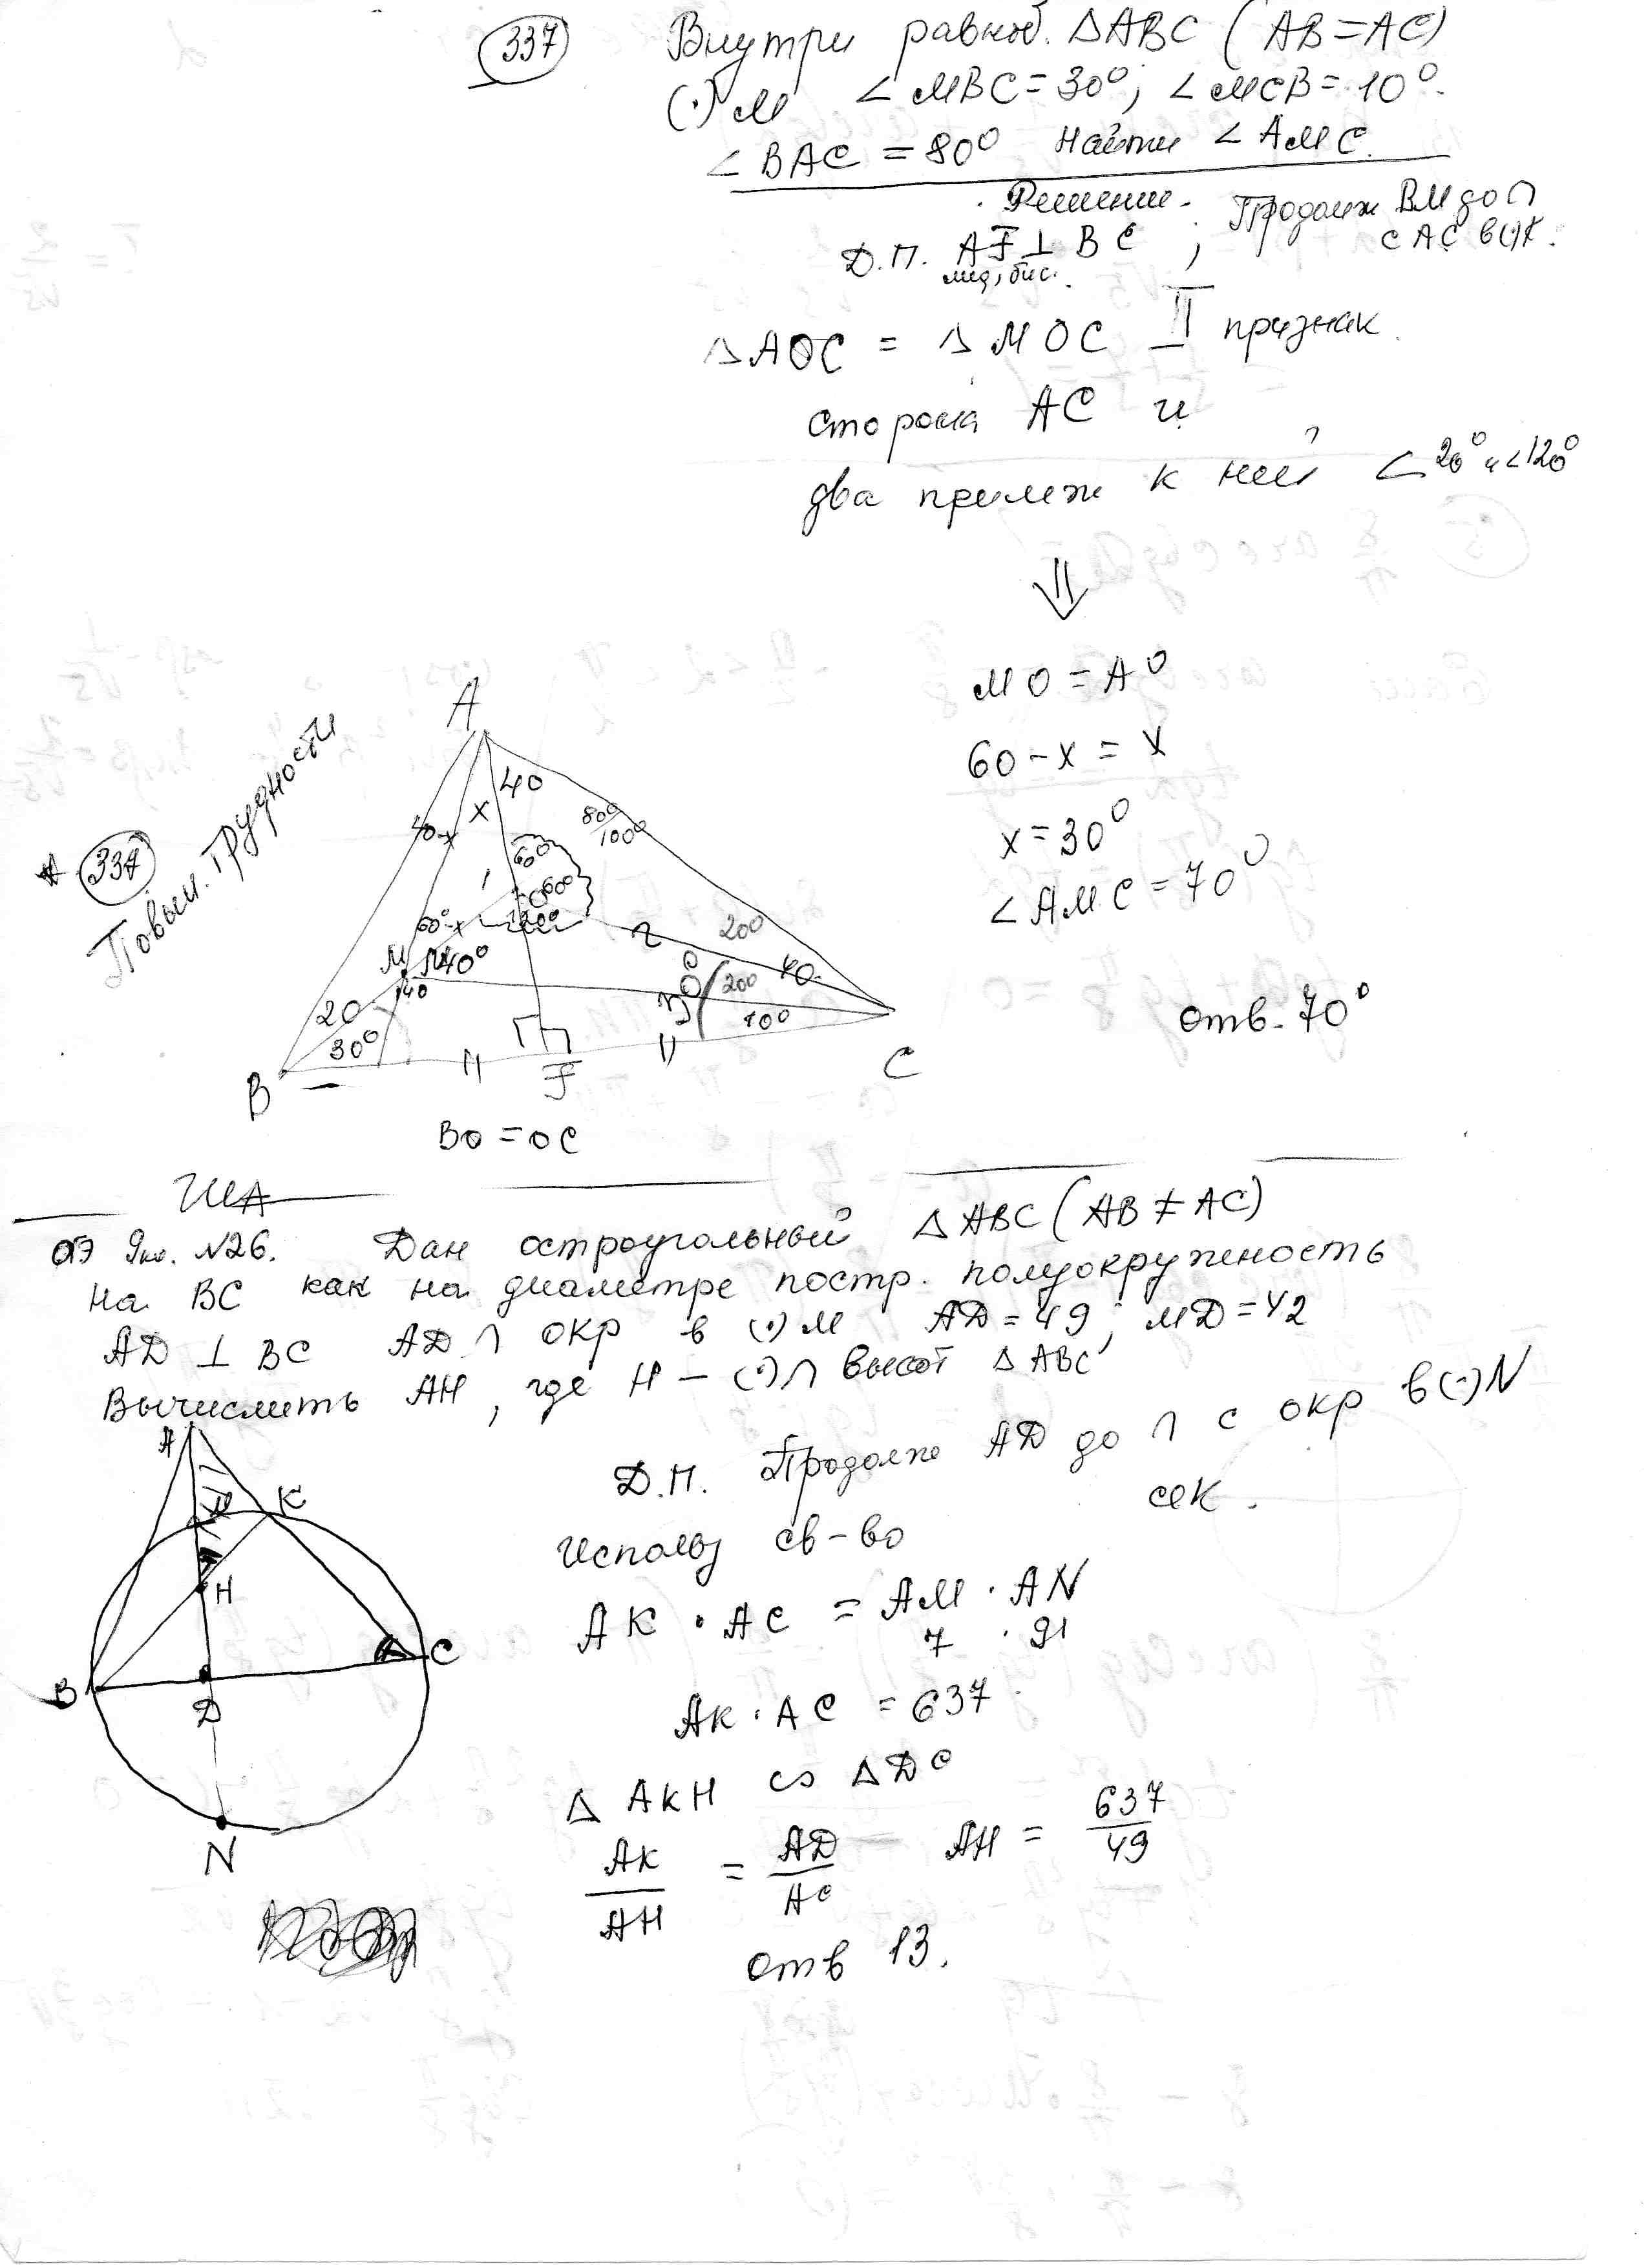 337
Внутри равноб. △ABC (AB=AC)
(·) M ∠MBC=30°; ∠MCB=10°.
∠BAC=80° Найти ∠AMC.
Решение.
Д.П. AF⊥BC ; Продолж BM до ∩
мед, бис. с AC в (·) K.
△AOC = △MOC II признак.
сторона AC и
два прилеж к ней ∠20° и ∠120°
⇓
MO=AO
60-x=x
x=30°
∠AMC=70°
Отв. 70°
* 337
Повыш. трудности
A
40
x
40-x
80°/100°
60°
60°
120°
60°-x
20°
M 40°
140
20°
40
20
30°
10°
B
F
C
BO=OC
ГИА
ОГЭ 9кл. №26. Дан остроугольный △ABC (AB≠AC)
На BC как на диаметре постр. полуокружность
AD⊥BC AD∩ окр в (·) M AD=49; MD=42
Вычислить AH, где H – (·)∩ высот △ABC
Д.П. Продолж AD до ∩ с окр в (·) N
Использ св-во сек.
AK·AC = AM·AN
7 · 91
AK·AC = 637.
△AKH ∽ △DC
AK/AH = AD/AC AH = 637/49
Отв 13.
A
M
K
H
B
D
C
N